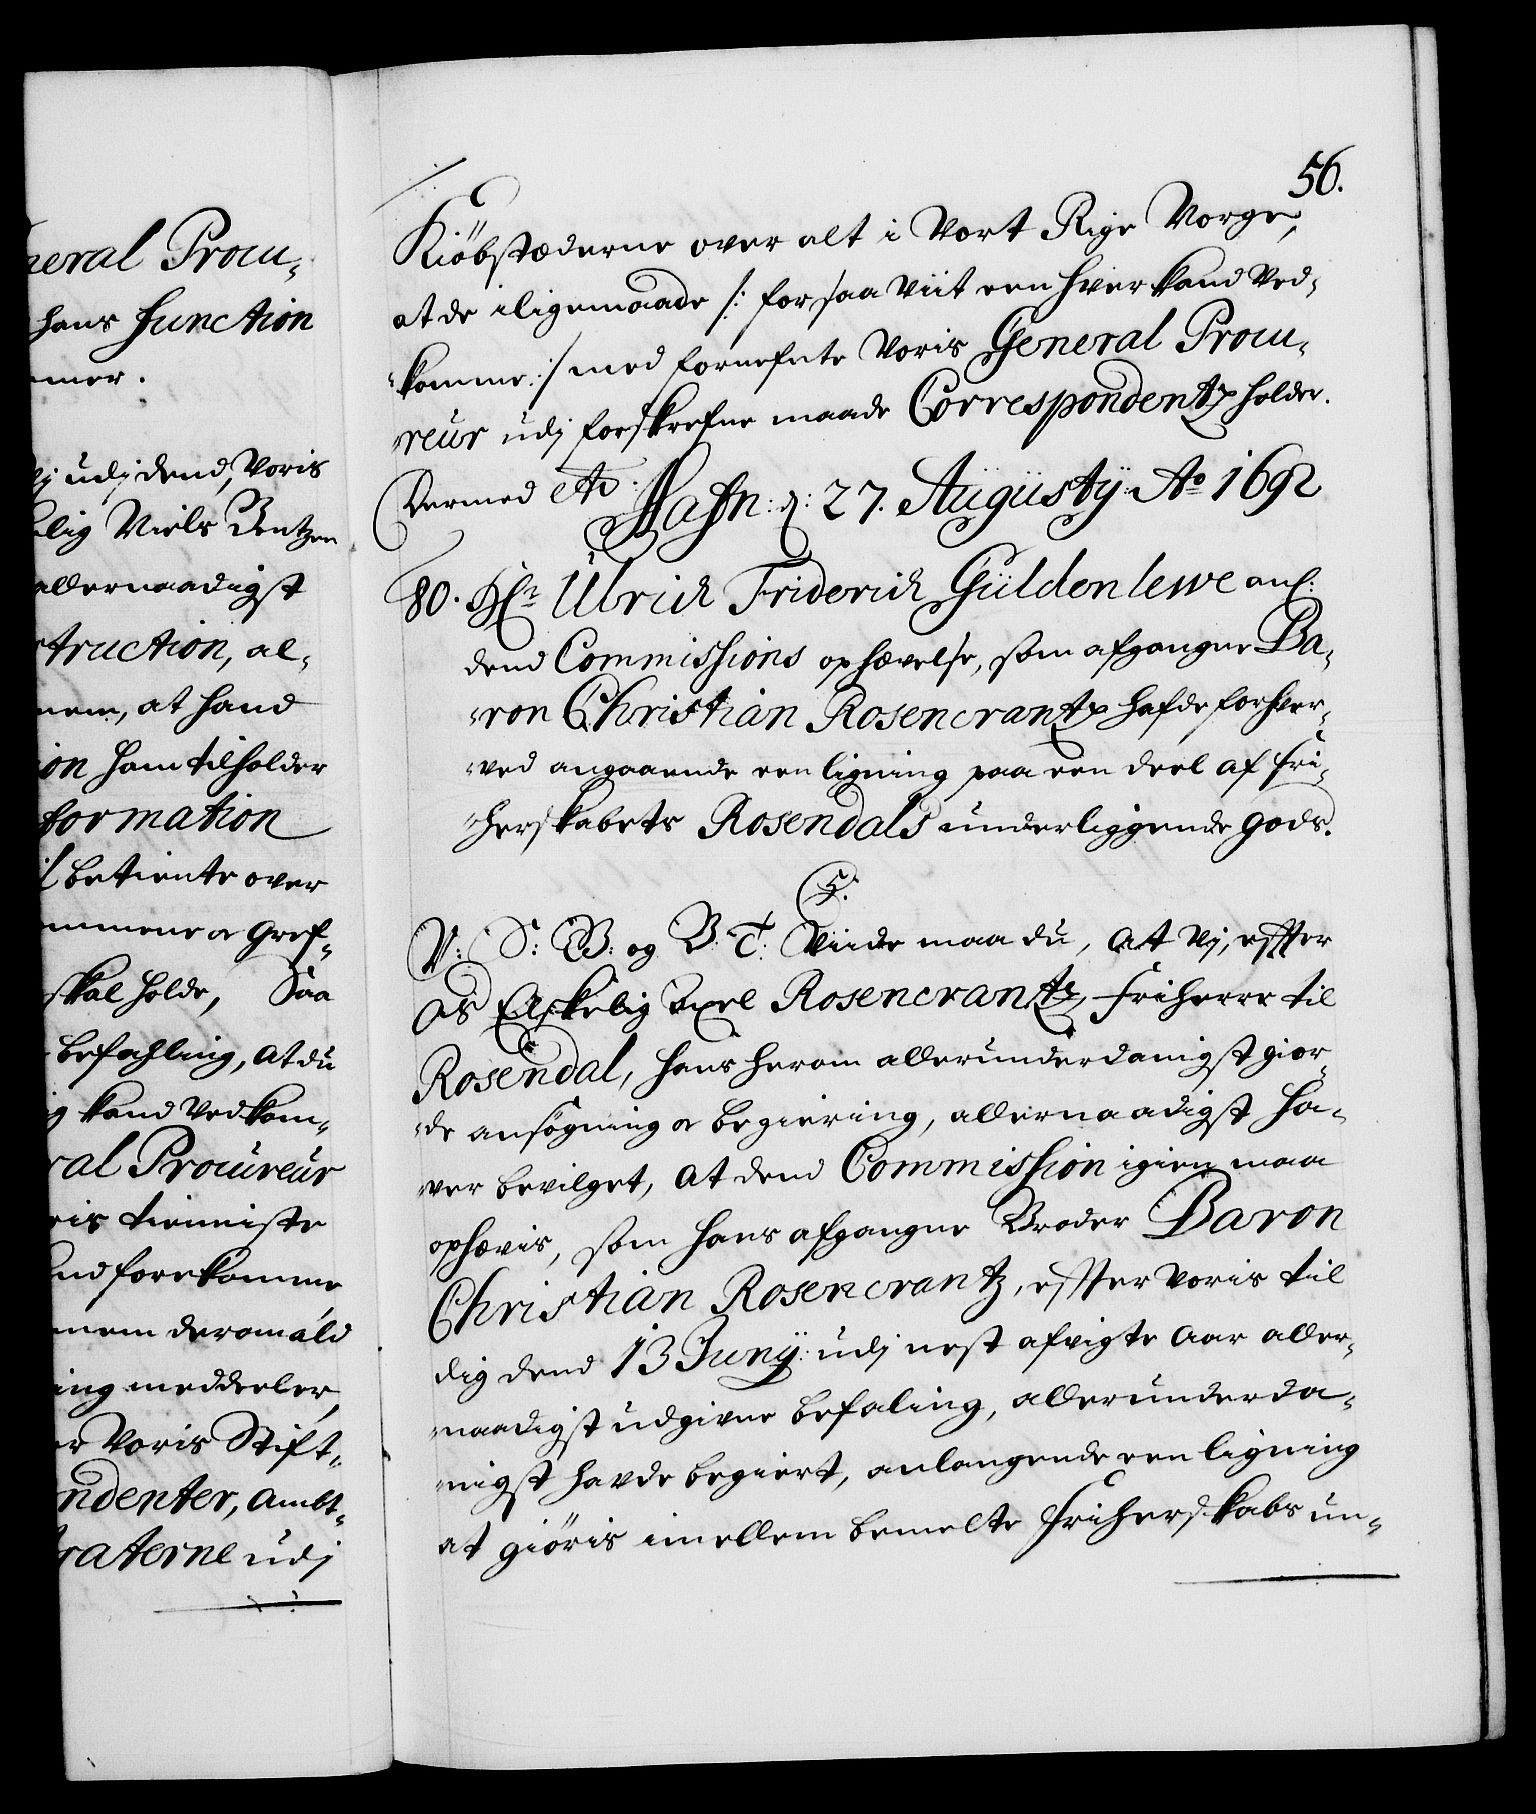 neral Procu-
hans function
mmer.
Vj udj dend, Voris
elig Niels Bentzen
allernaadigst
struction, al-
nem, at hand
ion ham tilholder
formation
il betiente over
ommene og Gref-
skal holde, Saa
befahling, at du
ig kand vedkom-
ral Procureur
ris tienniste
und forekomme
nem deromald
ing meddeeler,
or Voris Stift-
ndenter, Ambt-
traterne udj
56.
Kiöbstæderne over alt i Vort Rige Norge,
at de iligemaade /: forsaaviit een hver kand ved-
komme :/ med fornefnte Voris General Procu-
reur udj forskrefne maade Correspondentz holder.
Dermed etc: Hafn: d: 27. Augüstÿ Ao 1692
80. Hr. Ulrich Friderich Güldenlewe anl:
dend Commissions ophævelse, som afgangne Ba-
ron Christian Rosencrantz hafde forhver-
ved angaaende een ligning paa een deel af fri-
herskabets Rosendals underliggende gods.
C5.
V: S: G: og B: T: Viide maa du, at Vj, effter
os Elskelig Axel Rosencrantz, Friherre til
Rosendal, hans herom allerunderdanigst gior-
de ansøgning og begiering, allernaadigst ha-
ver bevilget, at dend Commission igien maa
ophævis, som hans afgangne Broder Baron
Christian Rosencrantz, effter Voris til
dig dend 13 Junÿ: udj nest afvigte Aar aller-
naadigst udgivne befaling, allerunderda-
nigst havde begiert, anlangende een ligning
at giöris imellem bemelte Friherskabs un-